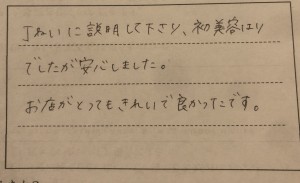 丁ねいに説明して下さり、初美容はり
でしたが安心しました。
お店がとってもきれいで良かったです。